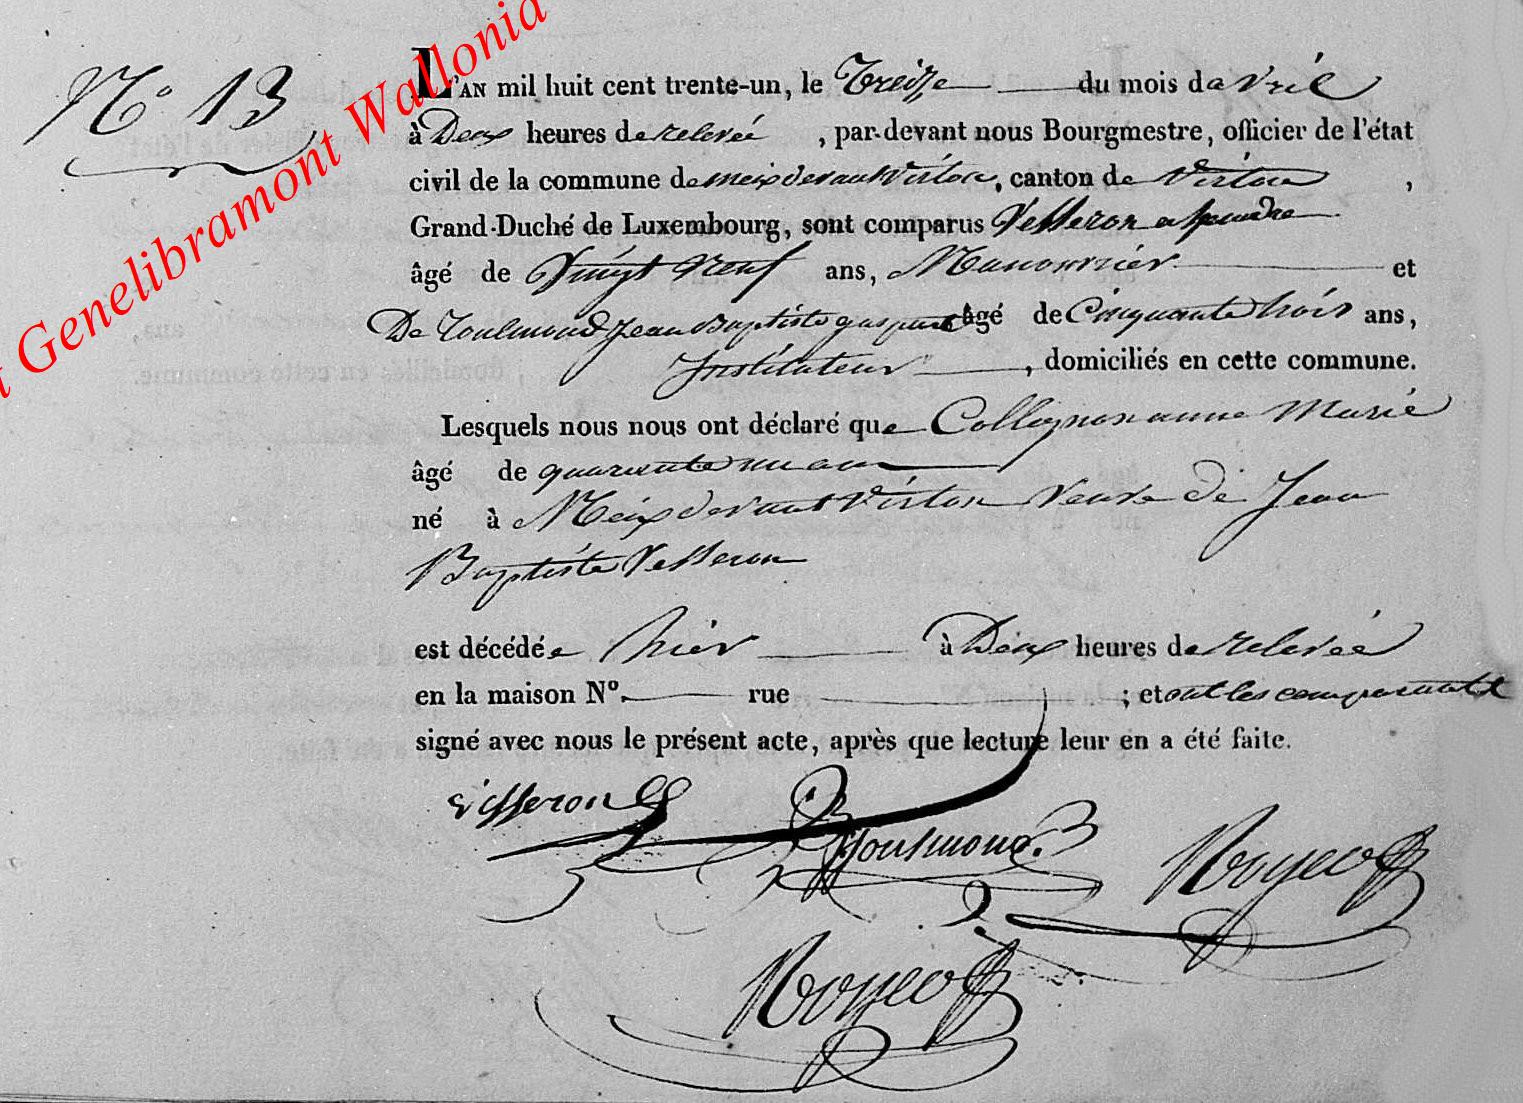 Genelibramont Wallonia
N° 13
L'AN mil huit cent trente-un, le Treize du mois d'avril
à Deux heures de relevée, par-devant nous Bourgmestre, officier de l'état
civil de la commune de meix devant Virton, canton de Virton,
Grand-Duché de Luxembourg, sont comparus Vesseron
âgé de Vingt Neuf ans, Manouvrier et
De Toulmond Jean Baptiste gaspard âgé de Cinquante trois ans,
Instituteur, domiciliés en cette commune.
Lesquels nous nous ont déclaré que Collignon anne Marie
âgé de quarante un ans
né à Meix devant Virton Veuve de Jean
Baptiste Vesseron
est décédée hier à Deux heures de relevée
en la maison N°. rue ; et ont les comparants
signé avec nous le présent acte, après que lecture leur en a été faite.
Vesseron